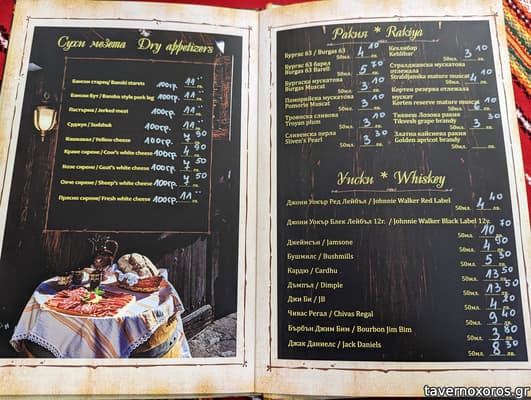 Сухи мезета Dry appetizers
Бански старец/ Banski starets 100гр. 11.--
Бански бут / Banska style pork leg 100гр. 11.--
Пастърма / Jerked meat 100гр. 11.--
Суджук / Sudzhuk 100гр. 11.--
Кашкавал / Yellow cheese 100гр. 4 90
Краве сирене / Cow's white cheese 100гр. 4 50
Козе сирене / Goat's white cheese 100гр. 7 50
Овче сирене / Sheep's white cheese 100гр. 4 90
Прясно сирене/ Fresh white cheese 100гр. 11.--
Ракия * Rakiya
Бургас 63 / Burgas 63 50мл. 4 10
Бургас 63 барел
Burgas 63 Barell 50мл. 5 70
Бургаска мускатова
Burgas Muscat 50мл. 3 10
Поморийска мускатова
Pomorie Muscat 50мл. 3 10
Троянска сливова
Troyan plum 50мл. 3 10
Сливенска перла
Sliven's Pearl 50мл. 3 10
Кехлибар
Kehlibar 50мл. 3 10
Стралджанска мускатова
отлежала
Straldjanska mature muscat 50мл. 4 10
Кортен резерва отлежала
мускат
Korten reserve mature muscat 50мл.
Тиквеш Лозова ракия
Tikvesh grape brandy 50мл. 3
Златна кайсиева ракия
Golden apricot brandy 50мл. 3
Уиски * Whiskey
Джони Уокър Ред Лейбъл / Johnnie Walker Red Label
50мл. 4 40
Джони Уокър Блек Лейбъл 12г. / Johnnie Walker Black Label 12y.
50мл. 10 70
Джеймсън / Jamsone 50мл. 4 90
Бушмилс / Bushmills 50мл. 5 50
Кардю / Cardhu 50мл. 13 50
Димпъл / Dimple 50мл. 13 50
Джи Би / JB 50мл. 4 20
Чивас Регал / Chivas Regal 50мл. 9 40
Бърбън Джим Бим / Bourbon Jim Bim 50мл. 3 80
Джак Даниелс / Jack Daniels 50мл. 8 30
tavernoxoros.gr